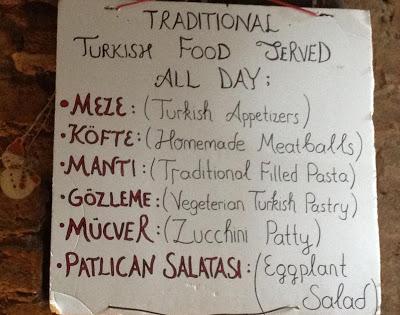 TRADITIONAL
TURKISH FOOD SERVED
ALL DAY:
•MEZE:(Turkish Appetizers)
•KÖFTE:(Homemade Meatballs)
•MANTI:(Traditional Filled Pasta)
•GÖZLEME:(Vegeterian Turkish Pastry)
•MÜCVER:(Zucchini Patty)
•PATLICAN SALATASI:(Eggplant
Salad)